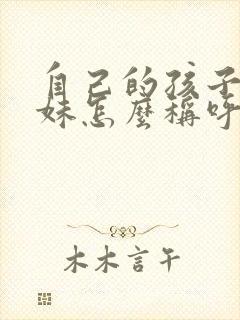 自己的孩子
妹怎麼稱呼
木木言午